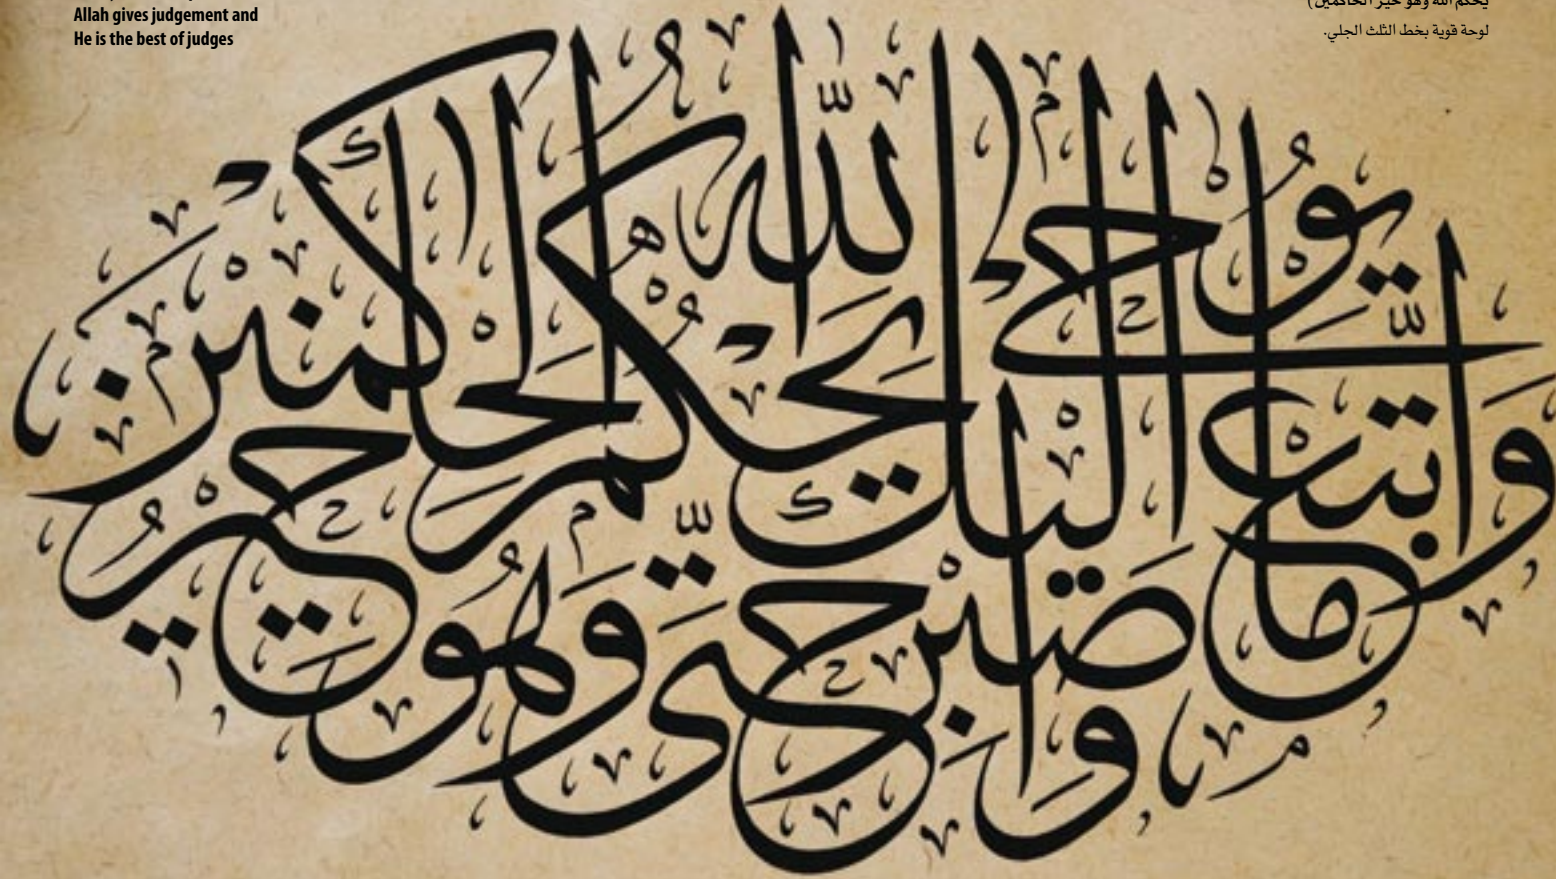 Allah gives judgement and
He is the best of judges
يحكم الله وهو خير الحاكمين)
لوحة قوية بخط الثلث الجلي.
وَاتَّبِعْ مَا يُوحَىٰ إِلَيْكَ وَاصْبِرْ حَتَّىٰ يَحْكُمَ اللَّهُ وَهُوَ خَيْرُ الْحَاكِمِينَ